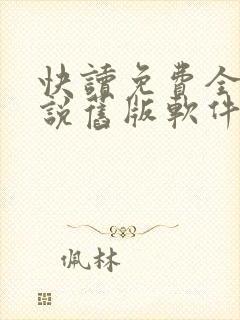 快讀免費全
說舊版軟件
佩林